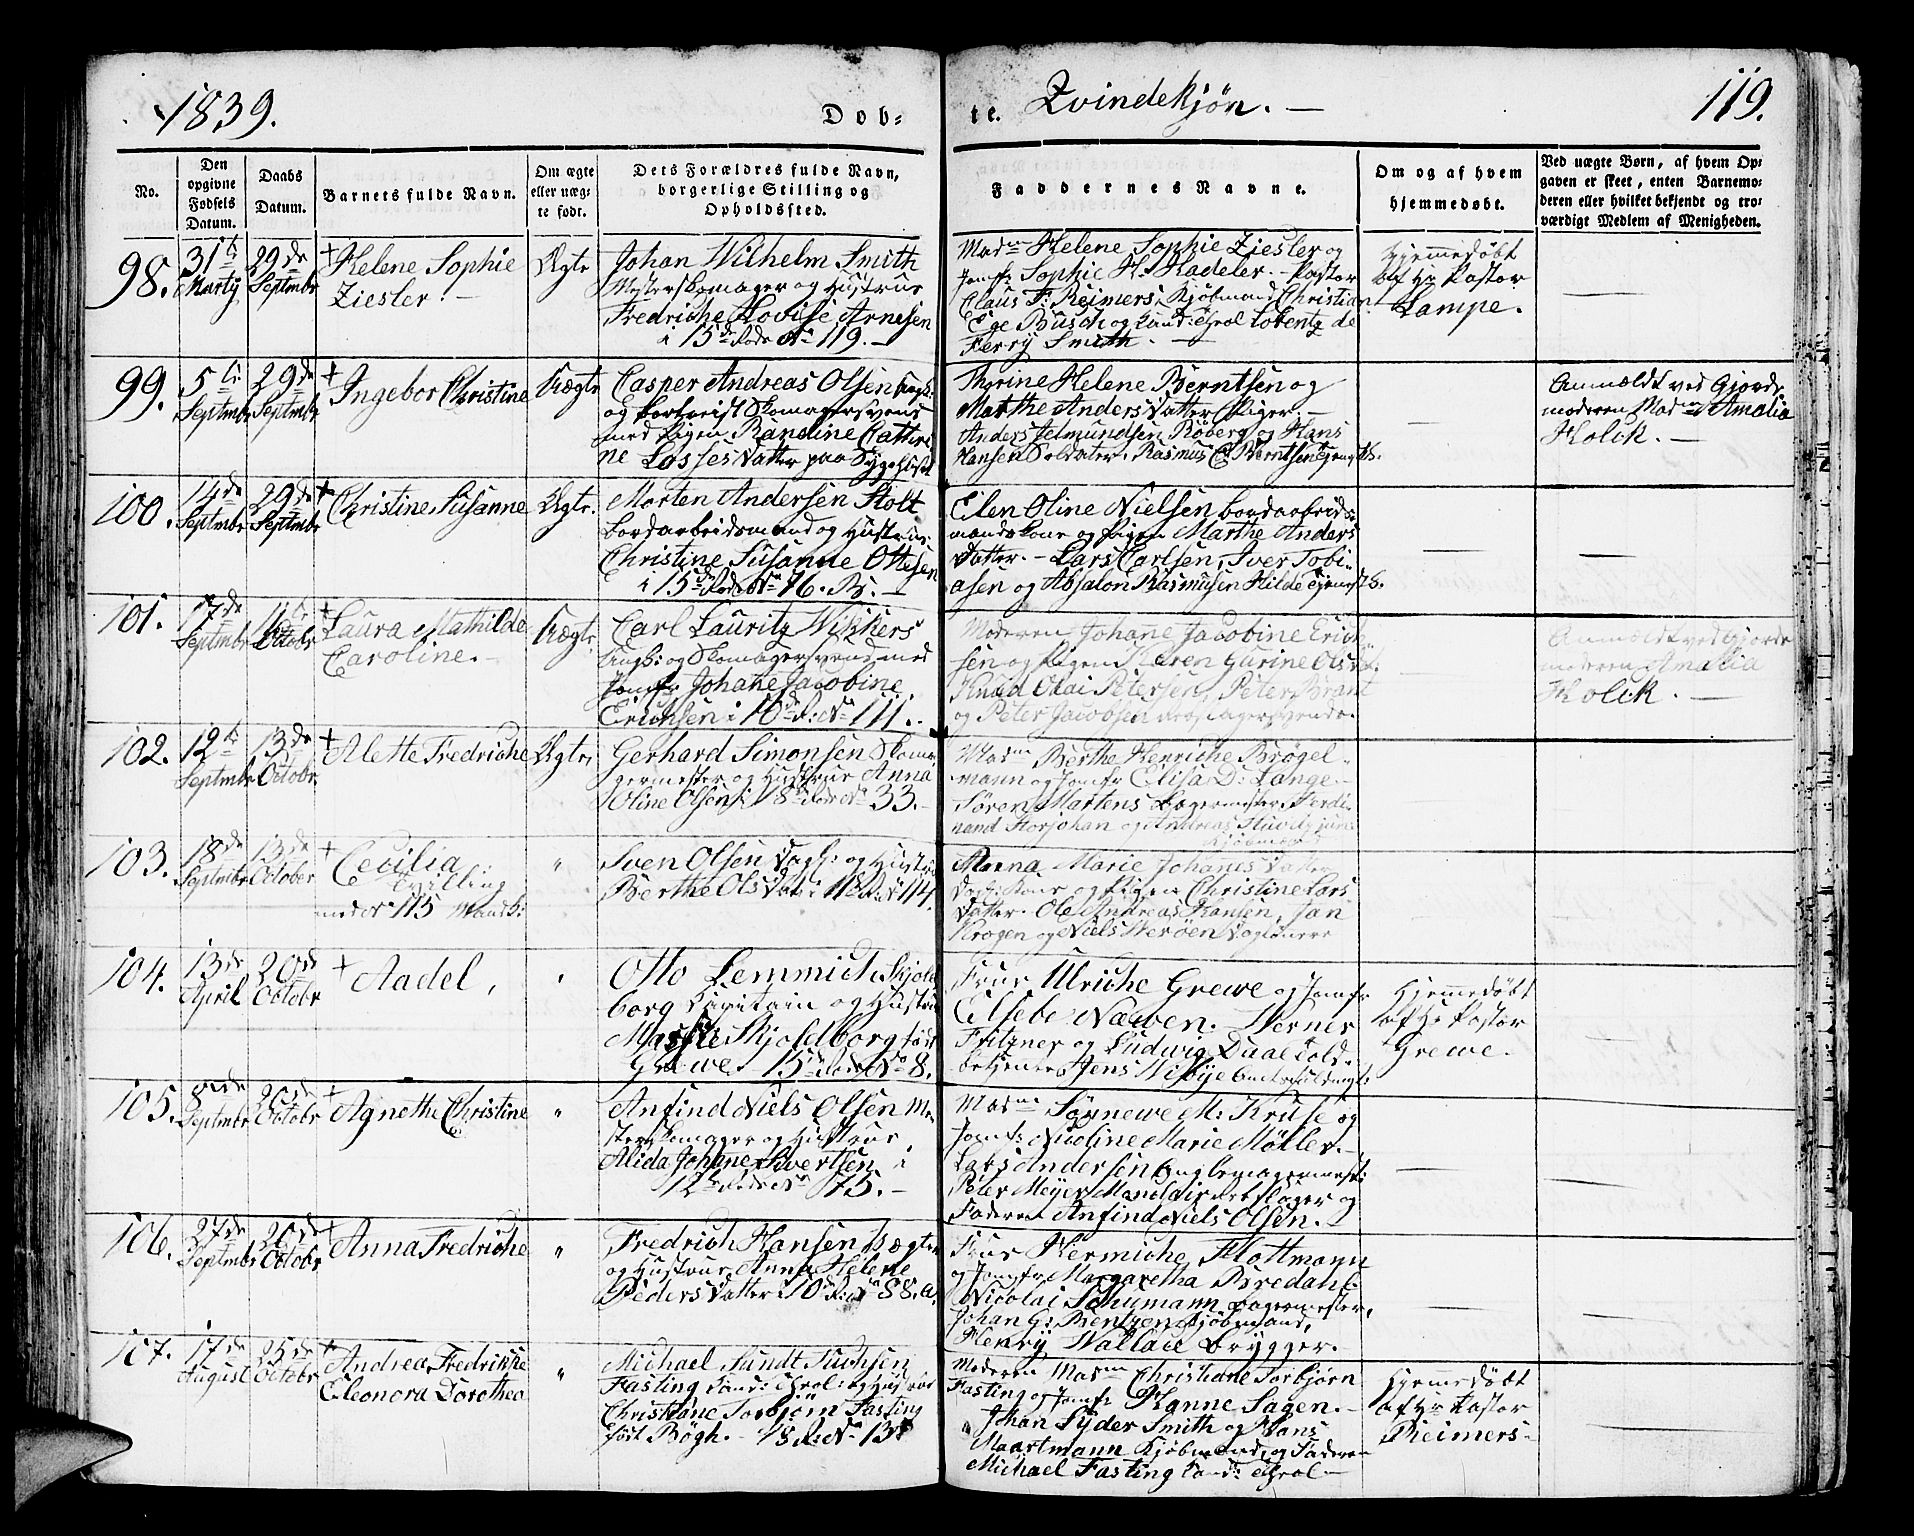 1839.
Dob-
te. Qvindekjøn. —
119.
No.
Den opgivne Fødsels Datum.
Daabs Datum.
Barnets fulde Navn.
Om ægte eller uægte født.
Dets Forældres fulde Navn, borgerlige Stilling og Opholdssted.
Faddernes Navne.
Om og af hvem hjemmedøbt.
Ved uægte Børn, af hvem Opgaven er skeet, enten Barnemoderen eller hvilket bekjendt og troværdigt Medlem af Menigheden.
98. 31te Marty 29de Septmbr
+ Helene Sophie
Ziesler. —
Ægte
Johan Wilhelm Smith
Mesterskomager og Hustrue
Fredriche Lovise Arnesen
i 15de Rode No 119. —
Madm Helene Sophie Ziesler og
Jomfr Sophie H. Hadeler. — Pastor
Claus F: Reimers, Kjøbmand Christian
Ege Büsch og Cand: Chrol Lobentz de
Ferry Smith. —
Hjemmedøbt
af Hr Pastor
Lampe.
—
99. 5te Septmbr 29de Septmbr
+ Ingebor Christine
Uægte
Casper Andreas Olsen Ungk:
og bortreist Skomagersvend
med Pigen Randine Cathri
ne Lasses Datter paa Sygehuset
Thorine Helene Berntsen og
Marthe Anders Datter Piger. —
Anders Helmundsen Røberg og Hans
Hansen Soldater. Rasmus C. Berntsen tjenstk.
—
Anmeldt ved Gjorde
moderen Madm Amalia
Holck. —
100. 14de Septmbr 29de Septmbr
+ Christine Susanne
Ægte.
Morten Andersen Stolt
Bordarbeidsmand og Hustrue
Christine Susanne Ottesen
i 15de Rode No 76. B. —
Elen Oline Nielsen bordarbeids
mandskone og Pigen Marthe Anders
Datter. — Lars Carlsen, Iver Tobi-
asen og Absalon Rasmusen Hilde tjenstk.
—
—
101. 17de Septmbr 11te Octobr
+ Laura Mathilde
Caroline. —
Uægte
Carl Lauritz Wikkers
Ungk: og Skomagersvend med
Jomfr Johane Jacobine
Erichsen i 10de R: No 111.
Moderen Johane Jacobine Erich
sen og Pigen Karen Gurine Olsen
Knud Olai Petersen, Peter Brant
og Peter Jacobsen Skomagersvende.
Anmeldt ved Gjorde
moderen Amalia
Holck. —
102. 12te Septmbr 13de Octobr
+ Alette Fredriche
Ægte
Gerhard Simonsen Skoma
germester og Hustrue Anna
Oline Olsen i 18de Rode No 33. —
Madm Berthe Henriche Brøgel-
mann og Jomfr Elisa D: Lange. —
Søren Martens Bagermester, Ferdi-
nand Storjohan og Andreas Hudvig
Kjøbmænd
103. 18de Septmbr 13de October
+ Cecilia
Tvilling
med No 115 Mandk:
"
Sven Olsen Dagk: og Hustrue
Berthe Ols Datter i 11te R: No 114.
Anna Marie Johanes Datter
Dagk: Kone og Pigen Christine Lars
Datter. Ole Andreas Hansen, Jan
Krogen og Niels Nerøen Daglønere
104. 13de April 20de Octobr
+ Aadel,
"
Otto Lemmich Skjold
borg Capitain og Hustrue
Marthe Skjoldborg født
Grewe. 15de Rode No 8.
Frue Ulriche Grewe og Jomfr
Elsebe Næwen. Werner
Fritzner og Ludwig Daae Told-
betjente, Jens Nibye Contr
Hjemmedøbt
af Hr Pastor
Grewe.
105. 8de Septmbr 20de Octobr
+ Agnethe Christine
"
Anfind Niels Olsen Me-
sterskomager og Hustrue
Alida Johane Sivertsen i
12te Rode No 75. —
Madm Synnewe M: Kruse og
Jomfr: Nicoline Marie Møller. —
Lars Andersen
Peter Meyer Mandal Rebslager og
Faderen Anfind Niels Olsen.
—
106. 27de Septmbr 20de Octobr
+ Anna Fredriche
"
Fredrich Hansen Vægter
og Hustrue Anna Helene
Peders Datter i 10de R: No 88. a.
Frue Hermiche Flottmann
og Jomfr Margaretha Bredahl.
Nicolai Schumann Bagermester,
Johan G: Rentzen Kjøbmand,
Henry Wallace Brygger. —
—
—
107. 17de August 25de Octobr
+ Andrea Fredrikke
Eleonora Dorothea
"
Michael Sundt Tuchsen
Fasting Cand: Chrol: og Hustrue
Christiane Torbjørn Fasting
født Bøgh. — 18 R: No 13
Moderen Madm Christiane Torbjørn
Fasting og Jomfr Hanne Sagen. —
Johan Syder Smith og Hans
Maartmann Kjøbmænd, og Faderen
Michael Fasting Cand: Chrol —
Hjemmedøbt
af Hr Pastor
Reimers.
—